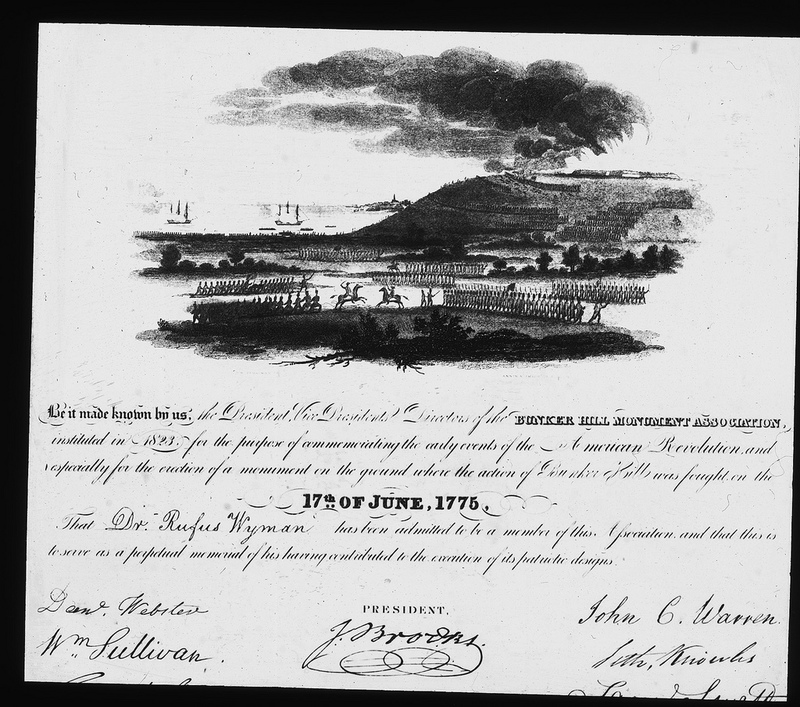 Be it made known by us, the President, Vice Presidents & Directors of the BUNKER HILL MONUMENT ASSOCIATION,
instituted in 1823, for the purpose of commemorating the early events of the American Revolution, and
especially for the erection of a monument on the ground where the action of Bunker Hill was fought, on the
17th OF JUNE, 1775,
That Dr. Rufus Wyman has been admitted to be a member of this Association, and that this is
to serve as a perpetual memorial of his having contributed to the execution of its patriotic designs.
Danl. Webster
PRESIDENT,
John C. Warren.
Wm Sullivan.
J. Brooks.
Seth, Knowles